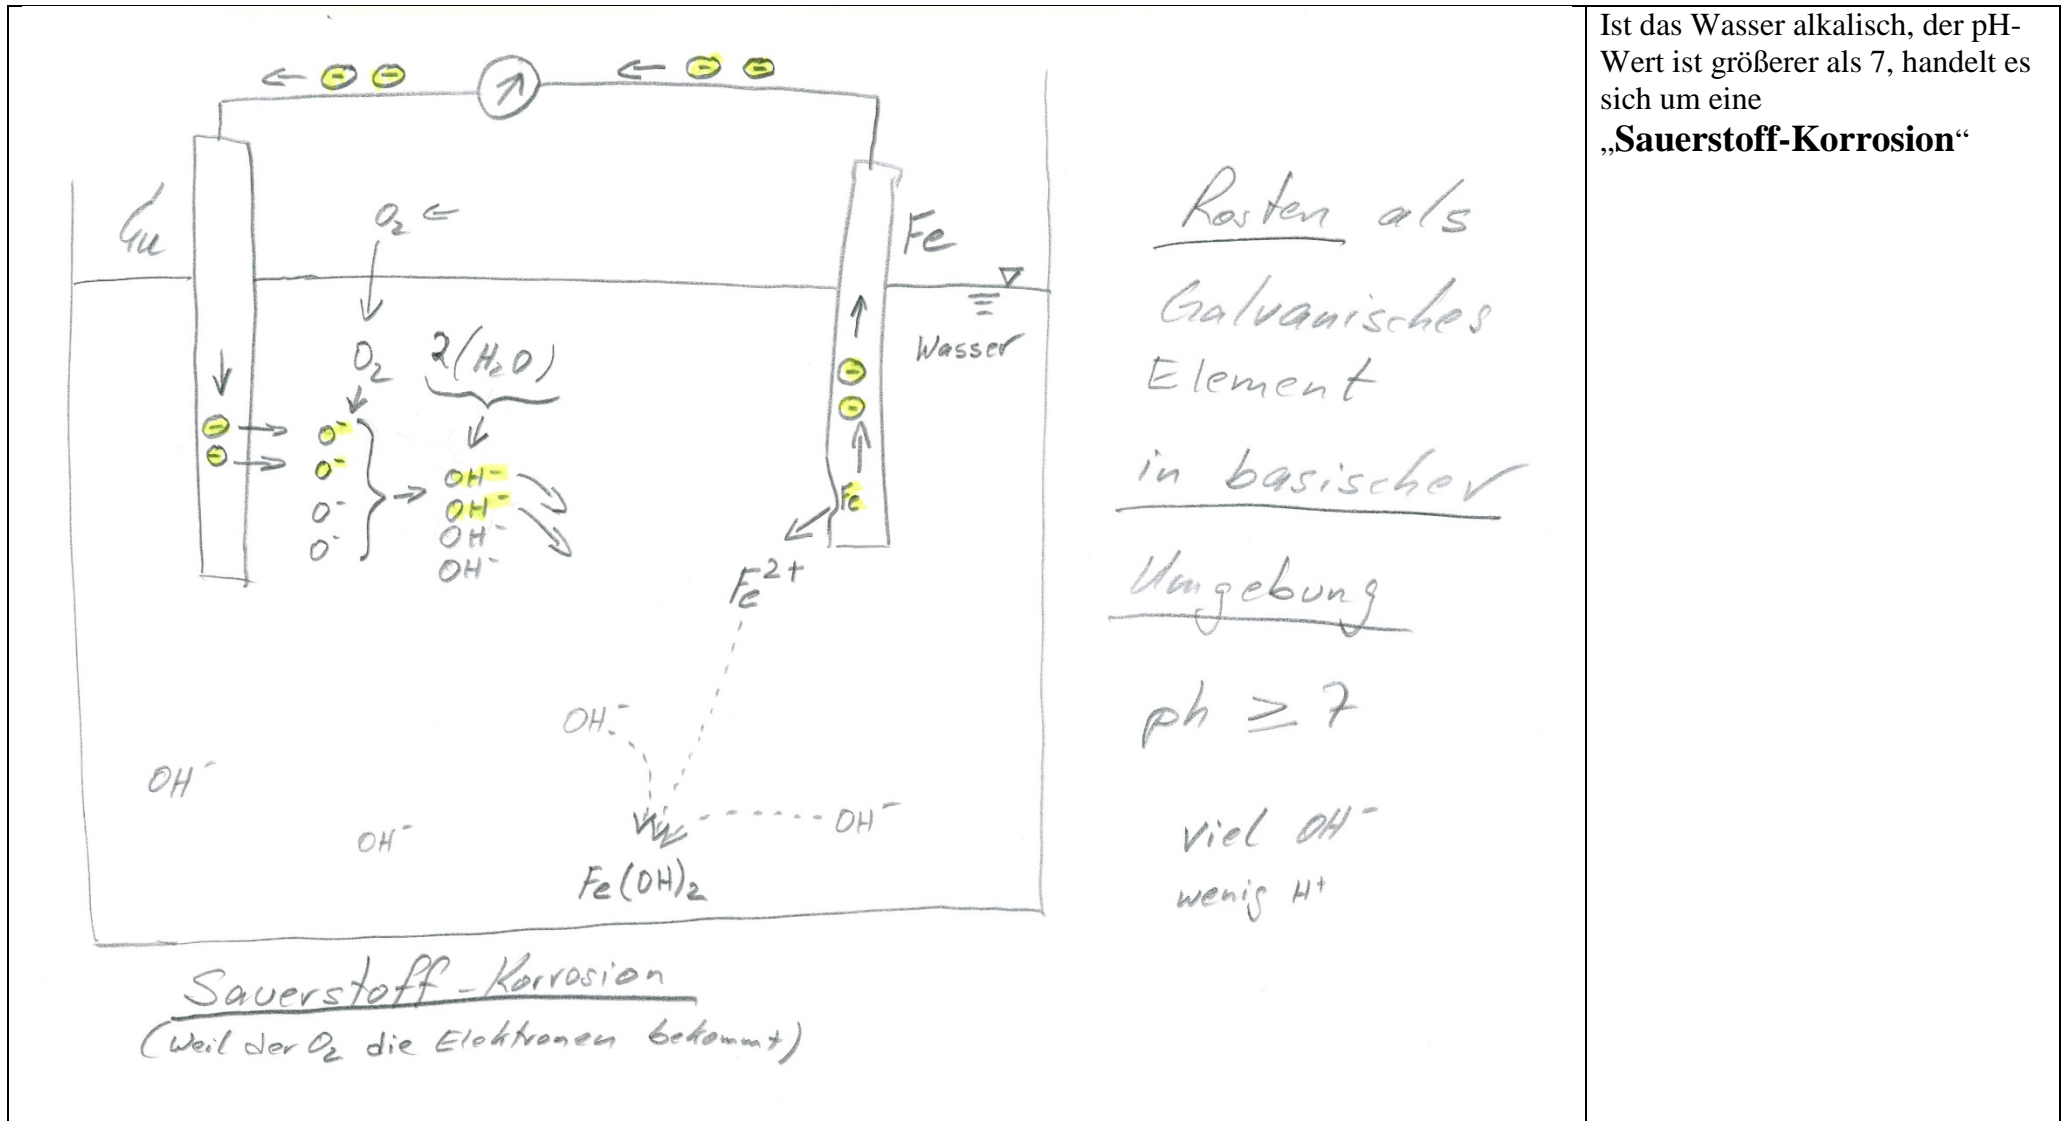 ⊖ ⊖
⊖ ⊖
Cu
O₂
Fe
O₂
2(H₂O)
Wasser
⊖
⊖
⊖
⊖
O⁻
O⁻
O⁻
O⁻
OH⁻
OH⁻
OH⁻
OH⁻
Fe
Fe²⁺
OH⁻
OH⁻
OH⁻
OH⁻
Fe(OH)₂
Sauerstoff-Korrosion
(weil der O₂ die Elektronen bekommt)
Rosten als
Galvanisches
Element
in basischer
Umgebung
ph ≥ 7
viel OH⁻
wenig H⁺
Ist das Wasser alkalisch, der pH-
Wert ist größerer als 7, handelt es
sich um eine
„Sauerstoff-Korrosion“